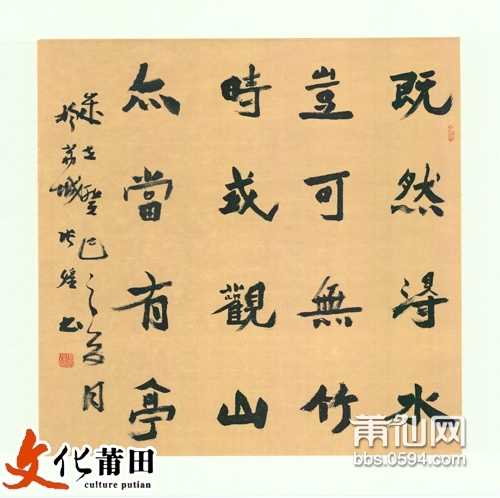 既然得水
豈可無竹
時或觀山
亦當有亭
歲在癸巳之夏月
於荔城
書
文化莆田
culture putian
莆仙网
bbs.0594.com